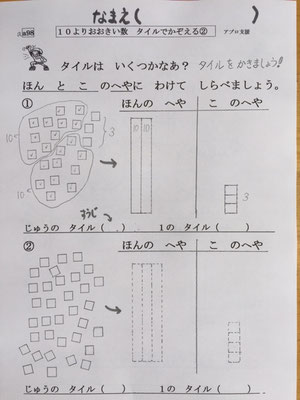 なまえ(　　　　　)
10よりおおきい数　タイルでかぞえる②　アプロ支援
タイルは　いくつかなあ？ タイルをかきましょう!!
ほん　と　こ　のへやに　わけて　しらべましょう。
①
ほんの　へや　こ　の　へや
10
3
10 10
3
10
すうじ
じゅうの　タイル(　　)　1の　タイル(　　)
②
ほんの　へや　こ　の　へや
じゅうの　タイル(　　)　1の　タイル(　　)